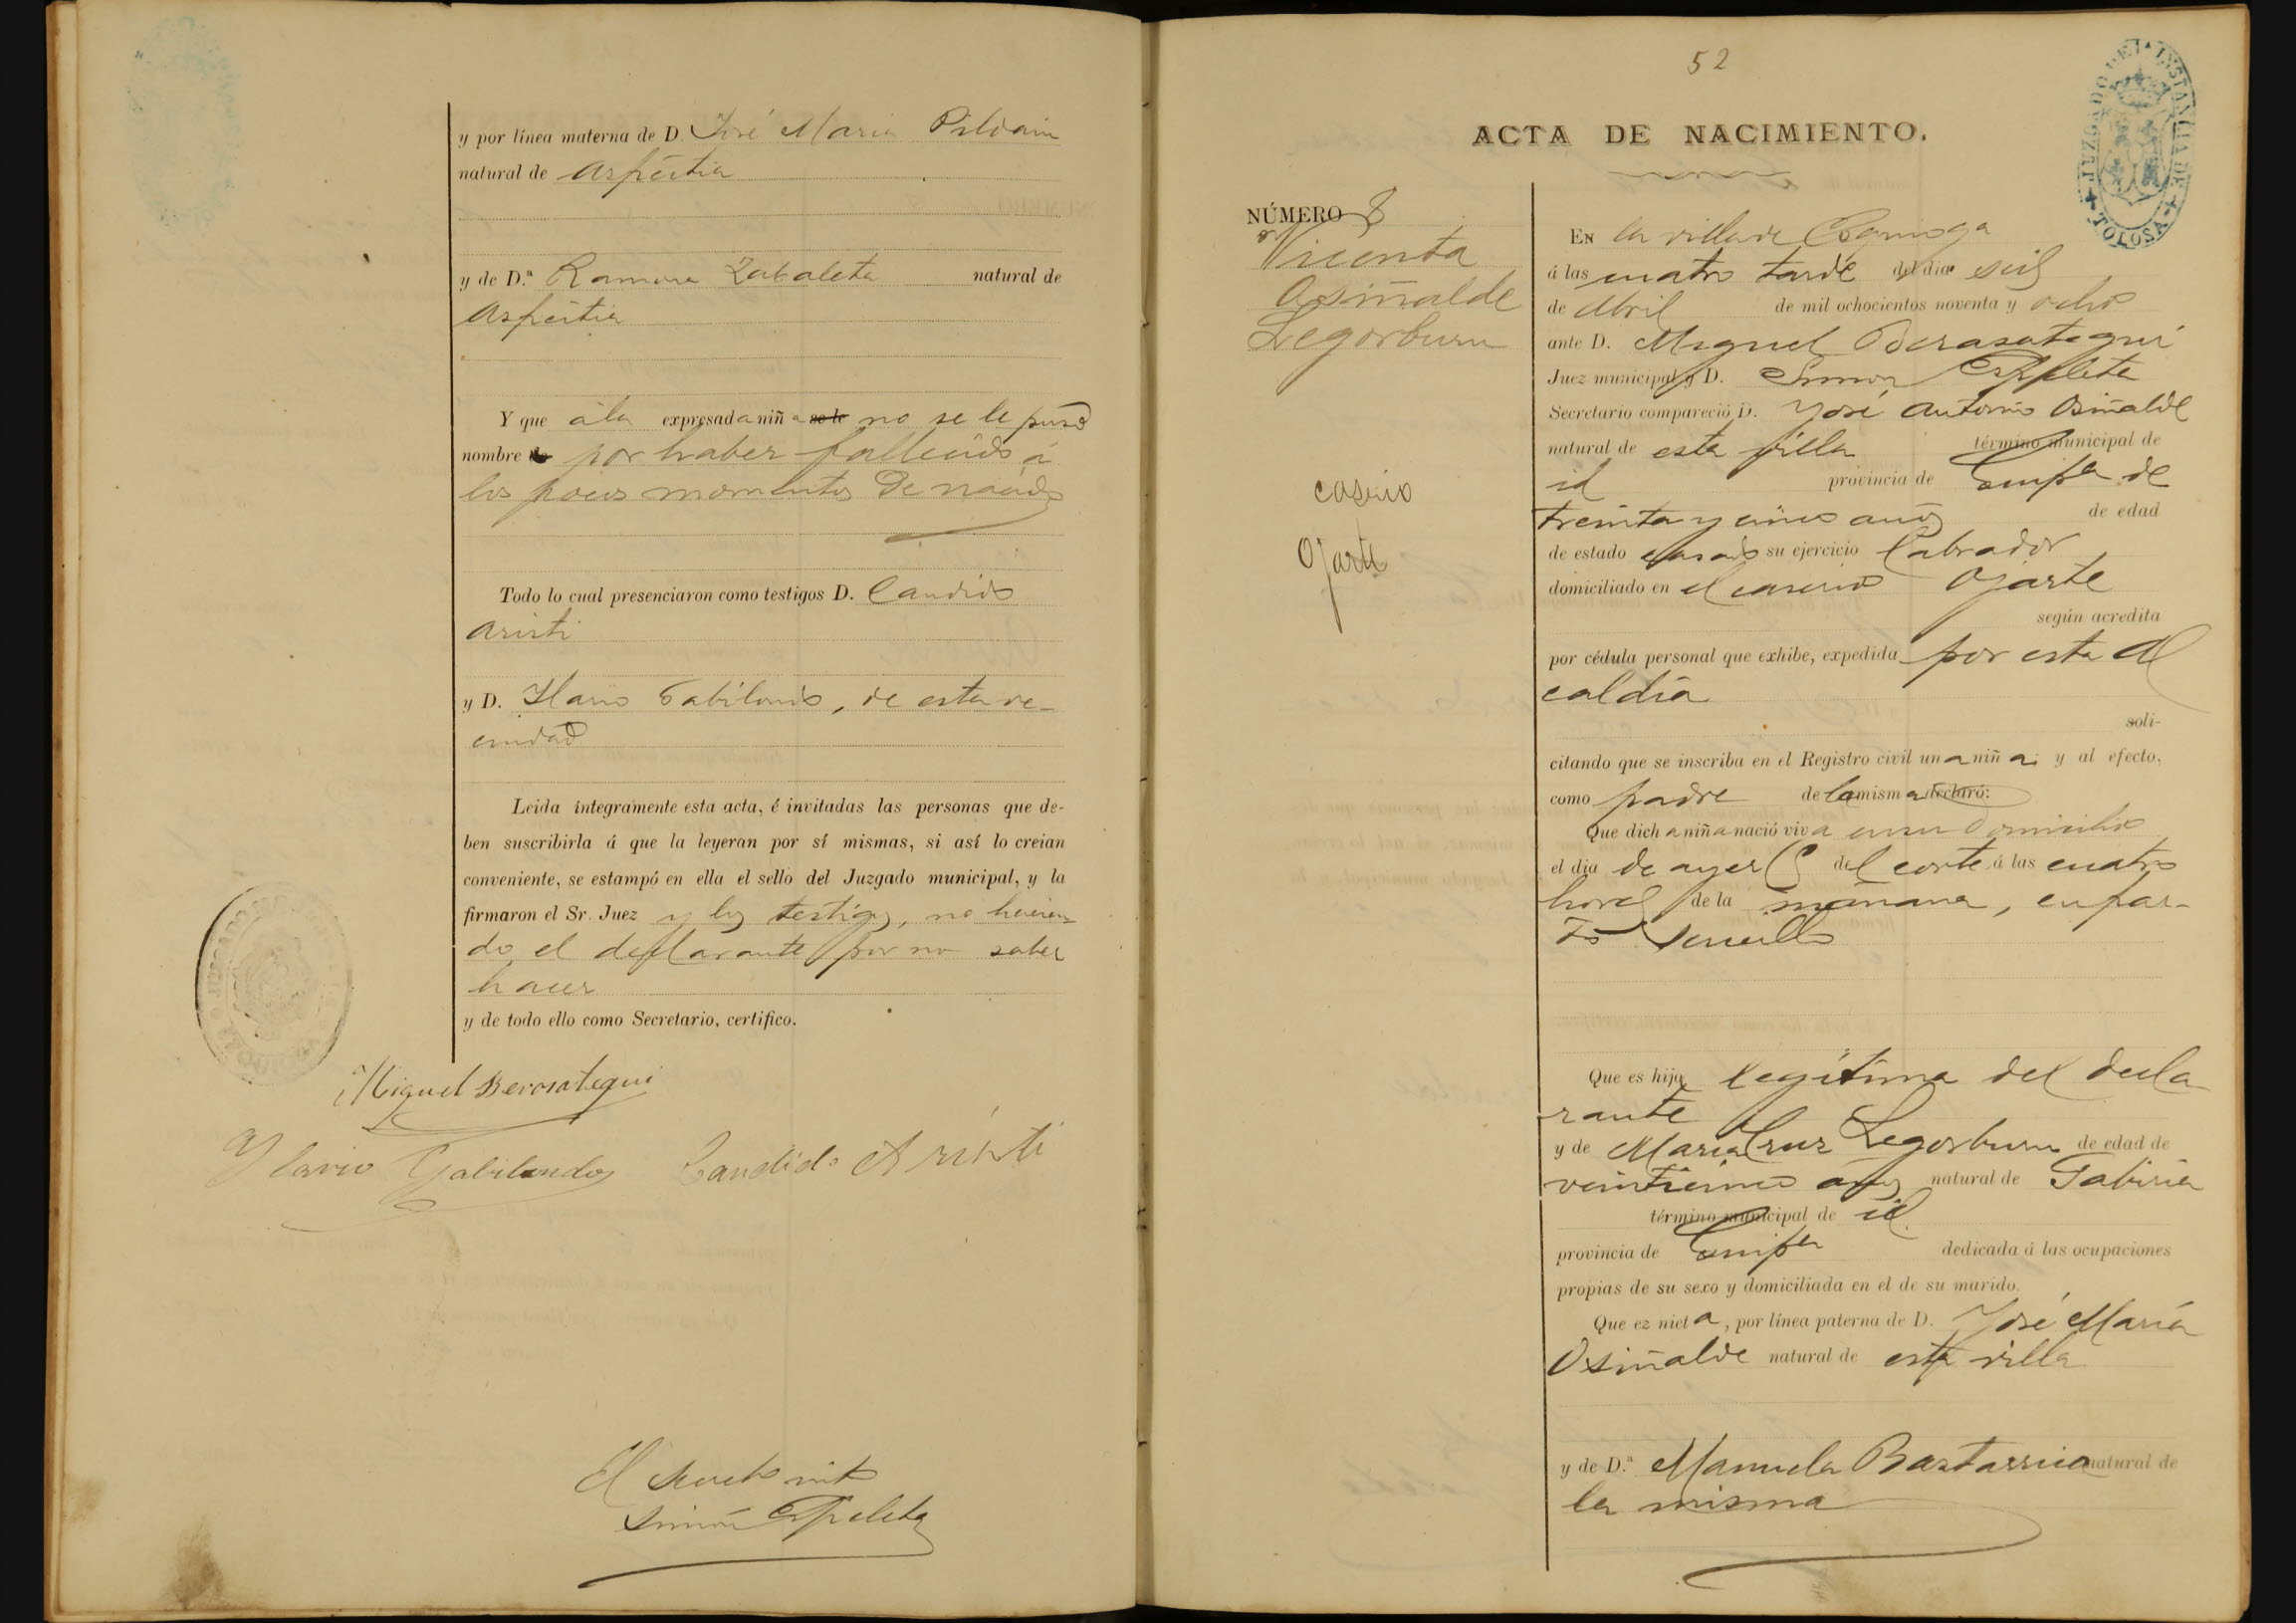 y por línea materna de D. José Maria Pildain
natural de Aspeitia
y de D.ª Ramona Zabaleta natural de
Aspeitia
Y que á la expresada niña se le no se le puso
nombre de por haber fallecido á
los pocos momentos de nacido
Todo lo cual presenciaron como testigos D. Candido
Aristi
y D. Ilario Gabilondo, de esta ve-
cindad
Leida íntegramente esta acta, é invitadas las personas que de-
ben suscribirla á que la leyeran por sí mismas, si así lo creian
conveniente, se estampó en ella el sello del Juzgado municipal, y la
firmaron el Sr. Juez y los testigos, no hacien-
do el declarante por no saber
hacer
y de todo ello como Secretario, certifico.
Miguel Berasategui
Ylario Gabilondo Candido Aristi
El Secretario
Simón Ezpeleta
52
ACTA DE NACIMIENTO.
JUZGADO DE 1ª INSTANCIA DE
TOLOSA
NÚMERO 8
Vicenta
Osiñalde
Legorburu
caserio
Ojarte
EN la villa de
á las cuatro tarde del dia seis
de Abril de mil ochocientos noventa y ocho
ante D. Miguel Berasategui
Juez municipal y D. Simon Ezpeleta
Secretario compareció D. José Antonio Osiñalde
natural de esta villa término municipal de
id provincia de Guipª de
treinta y cinco años de edad
de estado casado su ejercicio Labrador
domiciliado en el caserio Ojarte
según acredita
por cédula personal que exhibe, expedida por esta Al
caldía
soli-
citando que se inscriba en el Registro civil una niña; y al efecto,
como padre de la misma declaró:
Que dicha niña nació viva en su domicilio
el dia de ayer 5 del corte á las cuatro
horas de la mañana, en par-
to sencillo
Que es hija legítima del decla
rante
y de Maria Cruz Legorburu de edad de
veinticinco años natural de Gabiria
término municipal de id
provincia de Guipª dedicada á las ocupaciones
propias de su sexo y domiciliada en el de su marido.
Que ez nieta, por línea paterna de D. José María
Osiñalde natural de esta villa
y de D.ª Manuela Baztarrica natural de
la misma